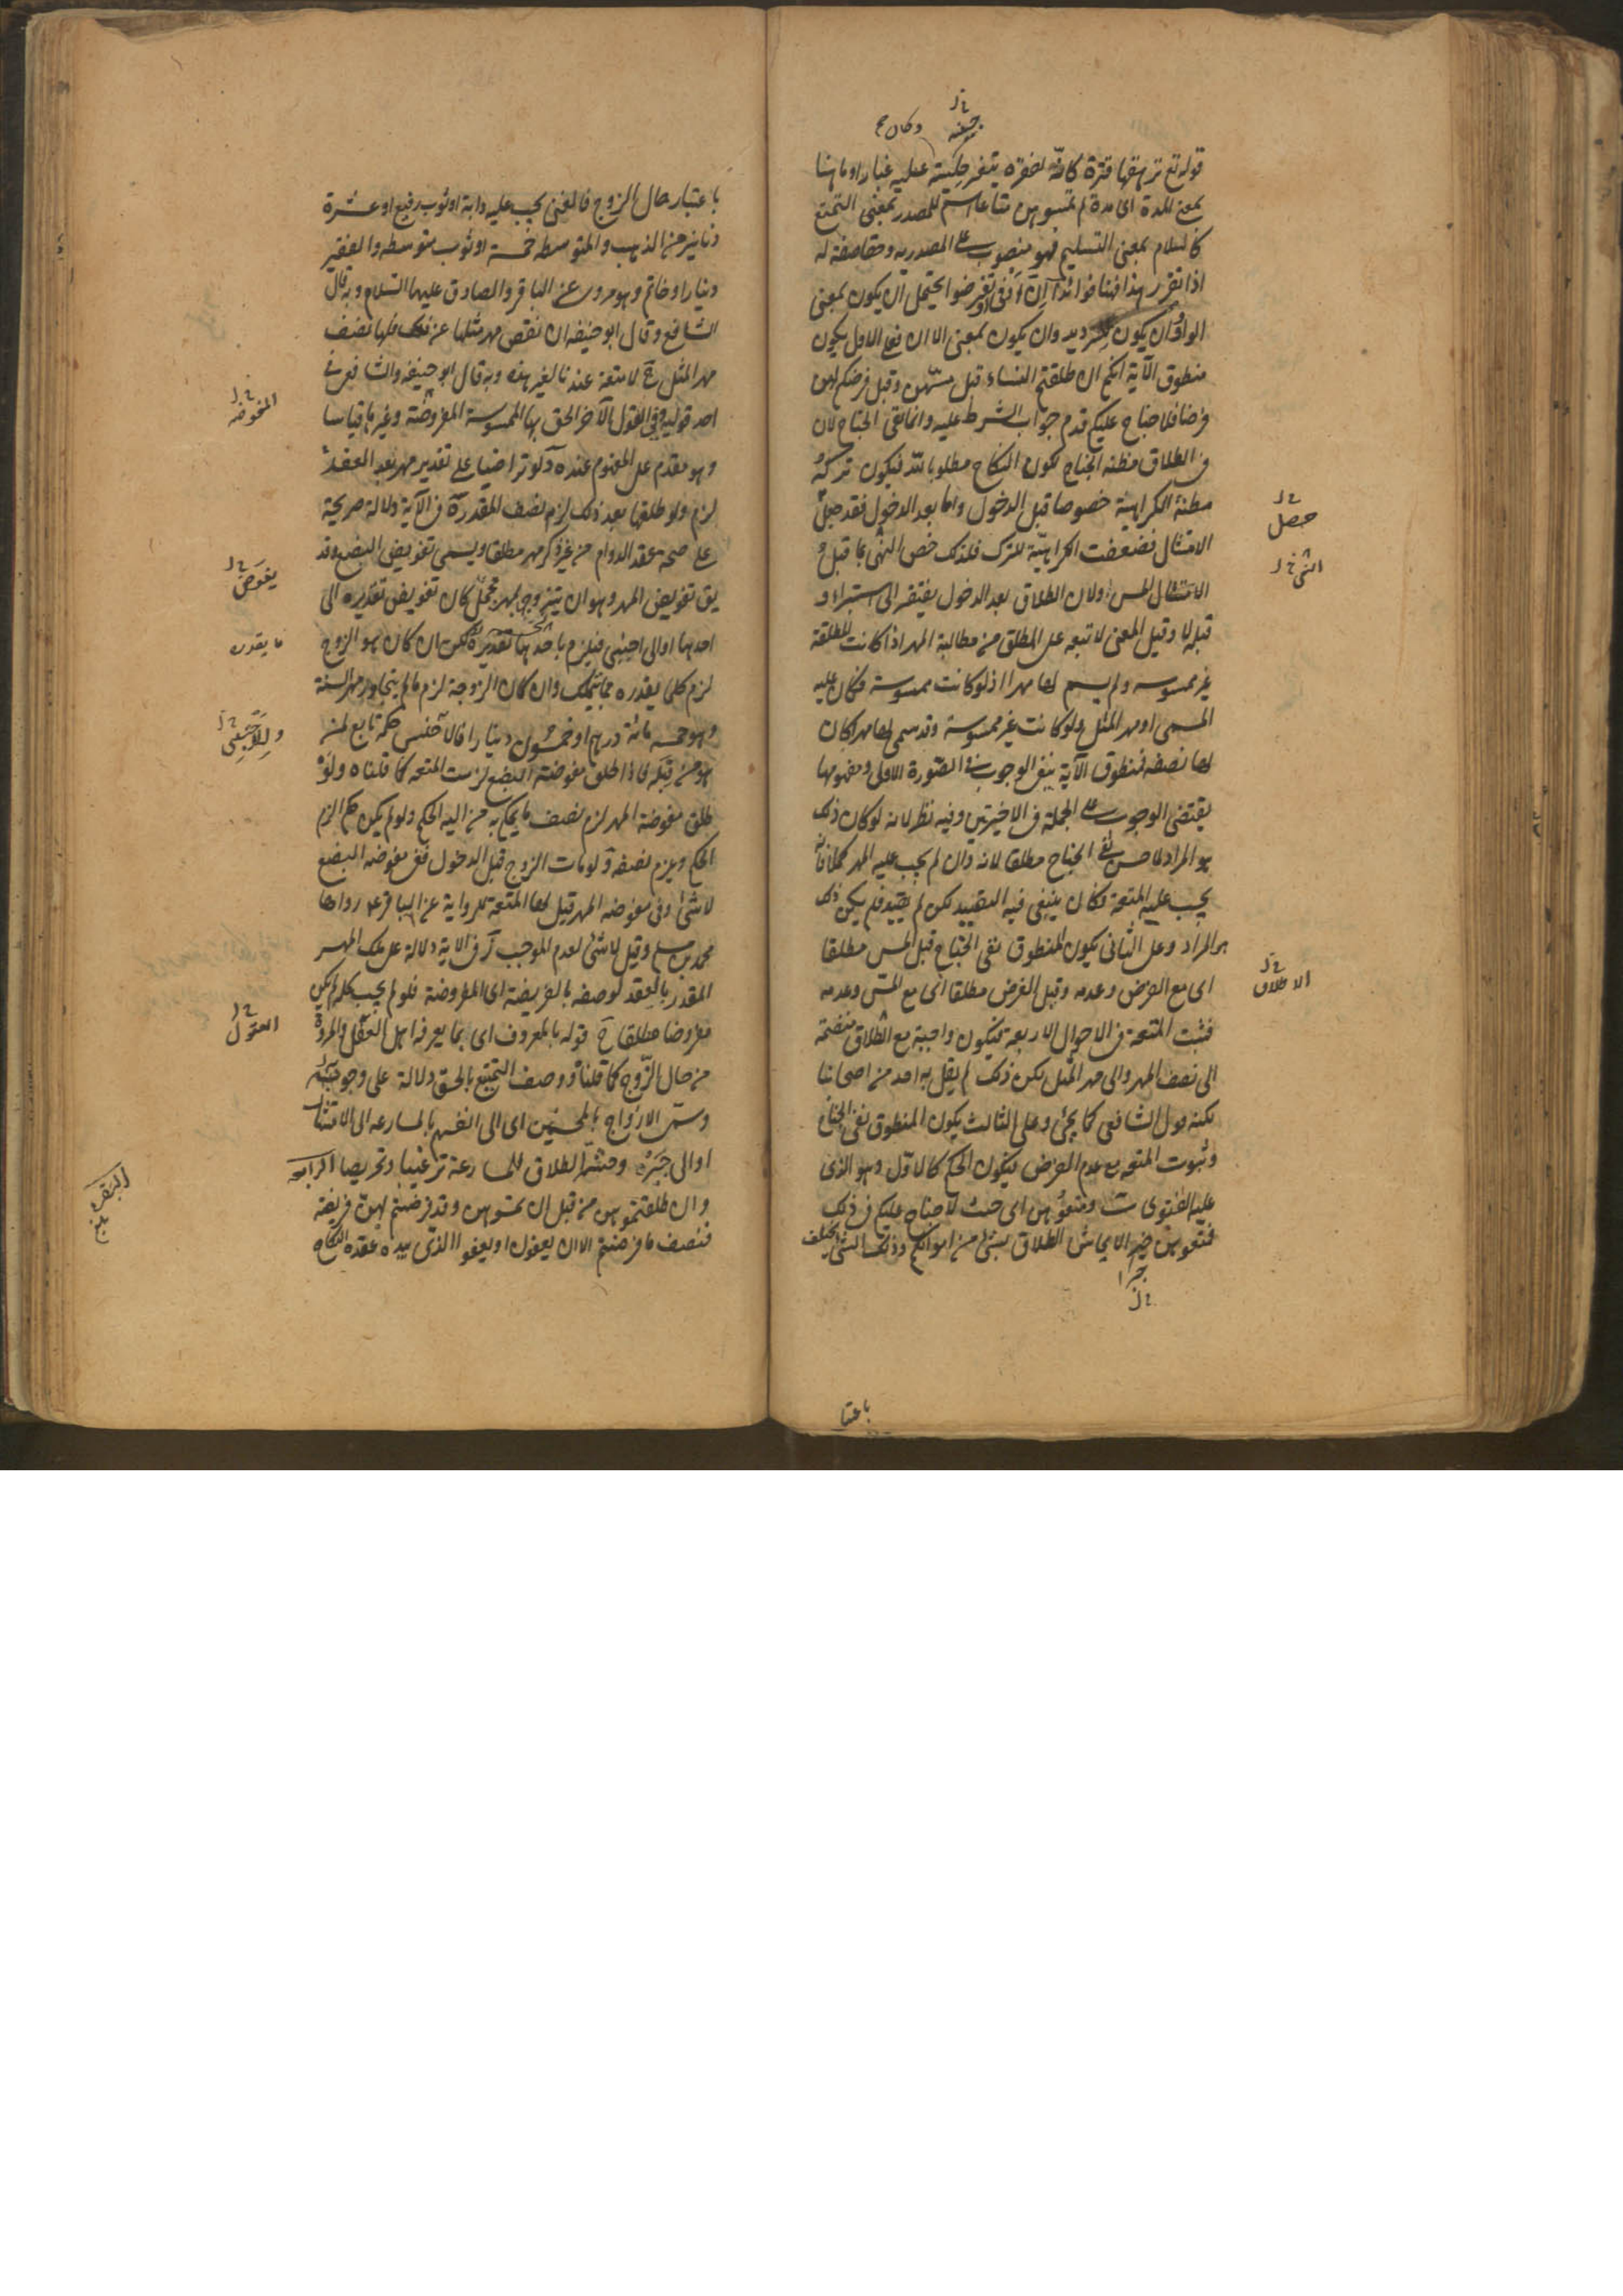 قوله تع ترهقها قترة كانه لفقره يتغير عليه غبار او ما هنا
بمعنى المدة اى مدة لم تمسوهن متاعا اسم للمصدر بمعنى التمتع
كالسلام بمعنى التسليم فهو منصوب على المصدريه وحقا صفة له
اذا تقرر هذا فهنا فوائد آ ان او فى او تفرضوا يحتمل ان يكون بمعنى
الواو وان يكون للترديد وان يكون بمعنى الا ان فعلى الاول يكون
منطوق الآية انكم ان طلقتم النساء قبل مسّهن وقبل فرضكم لهن
فرضا فلا جناح عليكم قدم جواب الشرط عليه وانما نفى الجناح لان
فى الطلاق مظنه الجناح لكون النكاح مطلوبا لله فيكون تركه
مظنة الكراهية خصوصا قبل الدخول واما بعد الدخول فقد حصل
الامتثال فضعفت الكراهيّة للترك فلذلك خص النهى بما قبل
الامتثال المس ولان الطلاق بعد الدخول يفتقر الى استبراء و
قبله لا وقيل المعنى لا تبعه على المطلق من مطالبة المهر اذا كانت المطلقة
غير ممسوسه ولم يسم لها مهرا اذ لو كانت ممسوسة فكان عليه
المسمى او مهر المثل ولو كانت غير ممسوسة وقد سمى لها مهرا كان
لها نصفه فمنطوق الآية ينفى الوجوب فى الصورة الاولى ومفهومها
يقتضى الوجوب على الجملة فى الاخيرتين وفيه نظر لانه لو كان ذلك
هو المراد لما حسن نفى الجناح مطلقا لانه وان لم يجب عليه المهر كملا فانه
يجب عليه المتعة فكان ينبغى فيه التقييد لكن لم يقيد فلم يكن ذلك
هو المراد وعلى الثانى يكون المنطوق نفى الجناح قبل المس مطلقا
اى مع الفرض وعدمه وقبل الفرض مطلقا اى مع المسّ وعدمه
فثبت المتعة فى الاحوال الاربعة فيكون واجبة مع الطلاق منضمة
الى نصف المهر والى مهر المثل لكن ذلك لم يقل به احد من اصحابنا
لكنه قول الشافعى كما يجئ وعلى الثالث يكون المنطوق نفى الجناح
وثبوت المتعه مع عدم الفرض فيكون الحكم كالاول وهو الذى
عليه الفتوى ب ومتعوهن اى حيث لا جناح عليكم فى ذلك
فمتعوهن الطلاق بشئ من اموالكم وذلك الشئ يختلف
حصل
الاطلاق
باعتبا
باعتبار حال الزوج فالغنى يجب عليه دابة او ثوب رفيع او عشرة
دنانير من الذهب والمتوسط خمسة او ثوب متوسط والفقير
دينار او خاتم وهو مروى عن الباقر والصادق عليهما السلام وبه قال
الشافعى وقال ابو حنيفه ان نقص مهر مثلها عن ذلك فلها نصف
مهر المثل ج لا متعة عندنا لغير هذه وبه قال ابو حنيفه والشافعى فى
احد قوليه وفى القول الآخر الحق بها الممسوسة المفروضة وغيرها قياسا
وهو مقدم على المفهوم عنده د لو تراضيا على تقدير مهر بعد العقد
لزم ولو طلقها بعد ذلك لزم نصف المقدر ه فى الآية دلالة صريحة
على صحه عقد الدوام من غير ذكر مهر مطلقا ويسمى تفويض البضع وقد
يق تفويض المهر وهو ان يتزوج بمهر مجمل كان تفويض تقديره الى
احدهما او الى اجنبى فيلزم ما يحدها تقديره لكن ان كان هو الزوج
لزم كلما يقدره مما يتملك وان كان الزوجة لزم ما لم يتجاوز مهر السنة
وهو خمسه مائة درهم او خمسون دينارا فالاجنبى حكمه تابع لمن
هو من قبله فاذا طلق مفوضة البضع لزمت المتعه كما قلناه ولو
طلق مفوضة المهر لزم نصف ما يحكم به من اليه الحكم ولو لم يكن حكم الزم
الحكم ويلزم نصفه و لو مات الزوج قبل الدخول ففى مفوضه البضع
لا شئ وفى مفوضه المهر قيل لها المتعة لرواية عن الباقر ع رواها
محمد بن مسلم وقيل لا شئ لعدم الموجب ز فى الاية دلالة على ملك المهر
المقدر بالعقد لوصفه بالفريضة اى المفروضة فلو لم يجب كله لم يكن
مفروضا مطلقا ح قوله بالمعروف اى بما يعرفه اهل العقل والمروة
من حال الزوج كما قلناه ووصف التمتيع بالحق دلالة على وجوبه
وسمى الازواج بالمحسنين اى الى انفسهم بالمسارعه الى الامتثال
او الى وحشة الطلاق للمسارعة ترغيبا وتحريصا الرابعة
وان طلقتموهن من قبل ان تمسوهن وقد فرضتم لهن فريضة
فنصف ما فرضتم الا ان يعفون او يعفوا الذى بيده عقدة النكاح
المفوضه
يفوض
ما يقدره
العقول
البقره